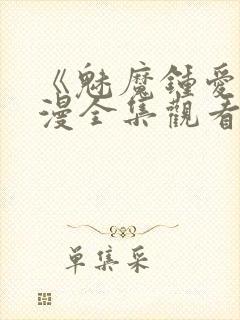 《魅魔鍾愛
漫全集觀看
單集采